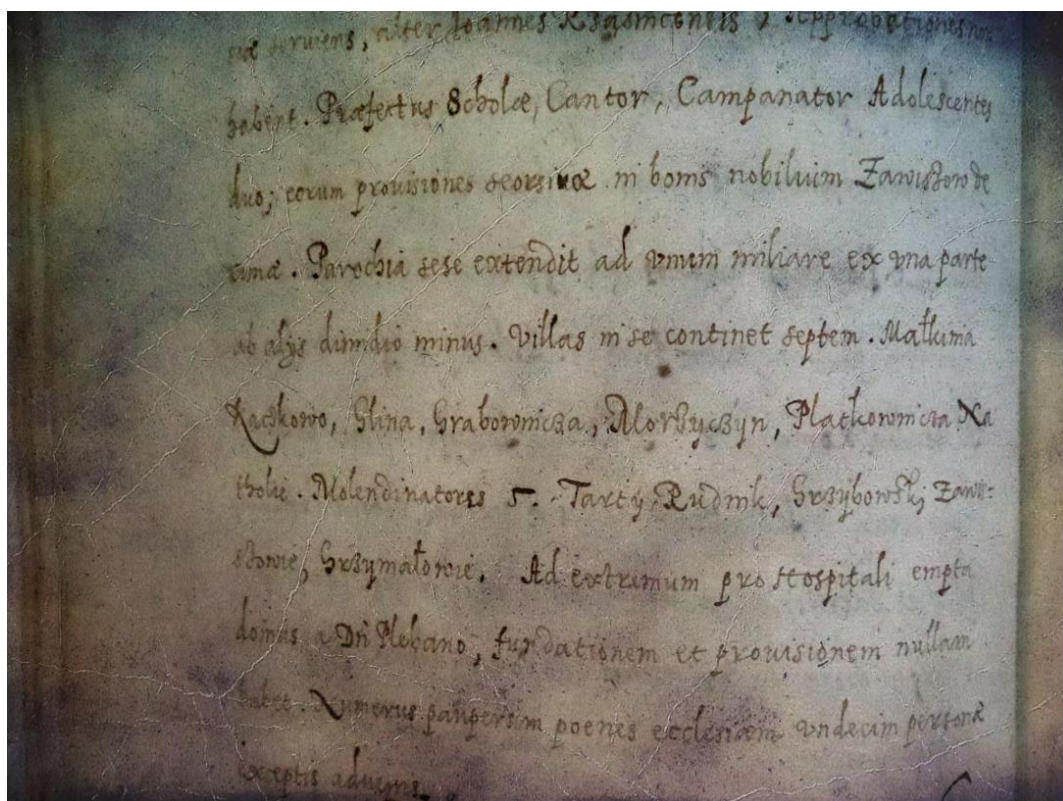 seruiens, alter Joannes Approbationes non
habent. Præfectus Scholæ, Cantor, Campanator Adolescentes
duo; eorum prouisiones seorsiuæ in bonis nobilium Zawistow de
Parochia sese extendit ad vnum miliare ex vna parte
ab alÿs dimidio minus. Villas in se continet septem. Małkinia
Kaczkowo, Glina, Grabownicza, Morzyczyn, Płatkownicza Na
tholie. Molendinatores 5. Tartÿ Rudnik, Grzybowski, Zawi:
stowie, Grzymałowie. Ad extrimum pro Hospitali empta
domus a Dn̄ Plebano, fundationem et prouisionem nullam
habet. Numerus pauperum poenes ecclesiam vndecim personæ
exceptis aduenis.